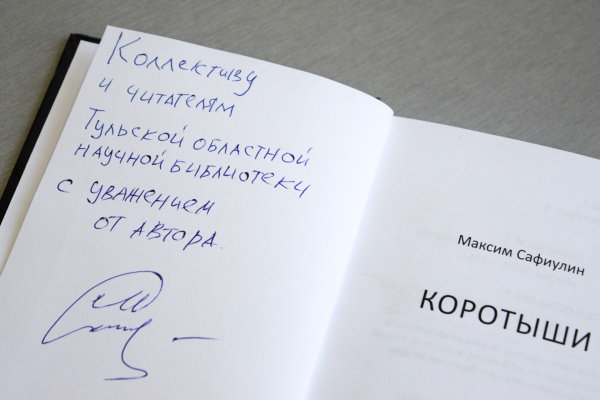 Коллективу
и читателям
Тульской областной
научной библиотеки
с уважением
от автора.
Максим Сафиулин
КОРОТЫШИ